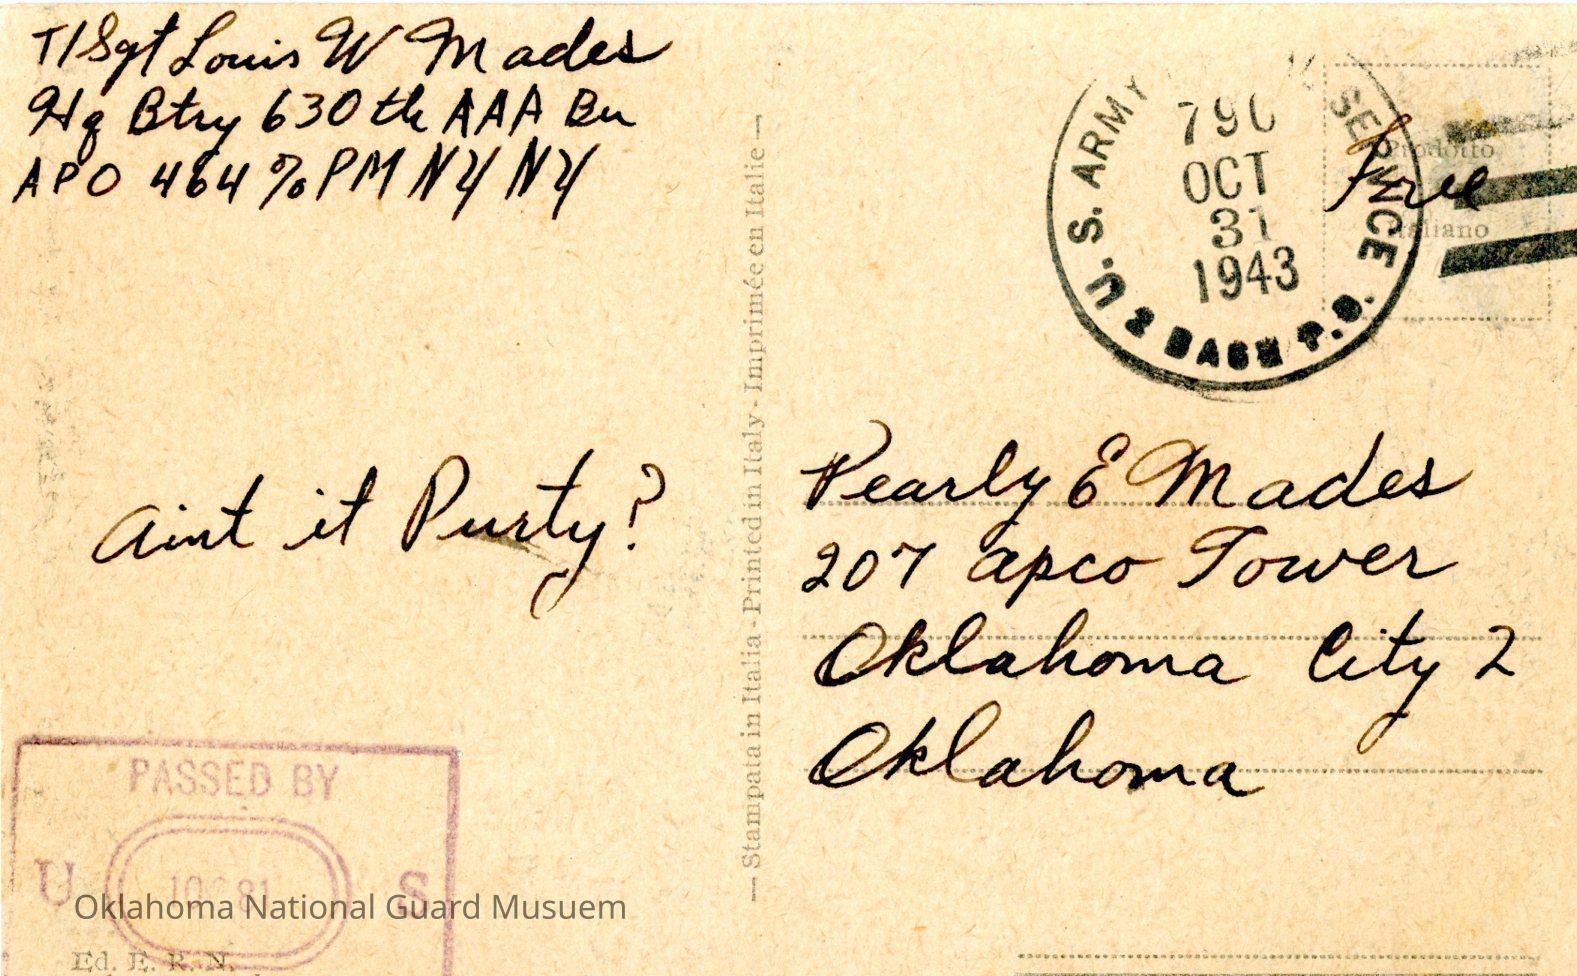 T/Sgt Louis W Mades
Hq Btry 630th AAA Bn
APO 464 % PM NY NY
U.S. ARMY SERVICE
OCT
31
1943
2 BASE P.O.
Free
Prodotto
Italiano
Aint it Purty?
— Stampata in Italia - Printed in Italy - Imprimée en Italie —
Pearly E Mades
207 Apco Tower
Oklahoma City 2
Oklahoma
PASSED BY
U S
Oklahoma National Guard Musuem
Ed. E. R. N.